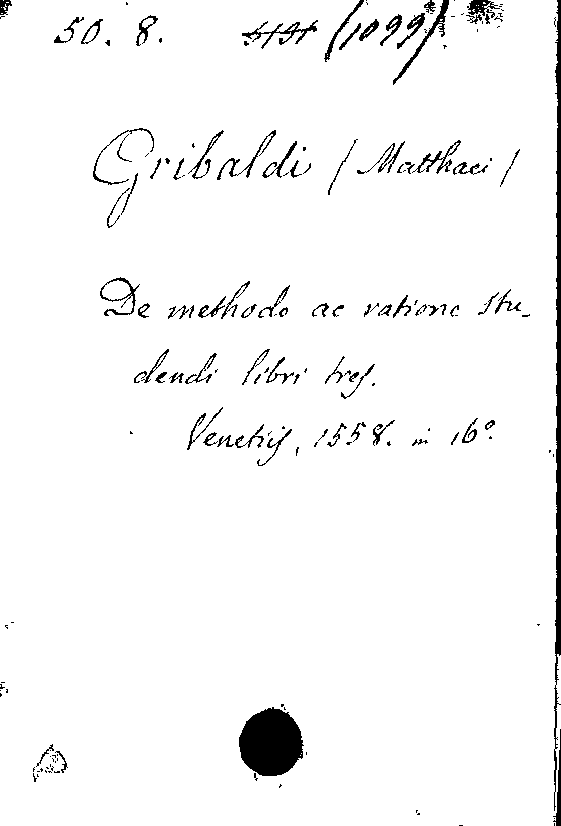 50. 8. (1099)
Gribaldi (Matthaei)
De methodo ac ratione stu-
dendi libri tres.
Venetiis, 1558. in 16°.